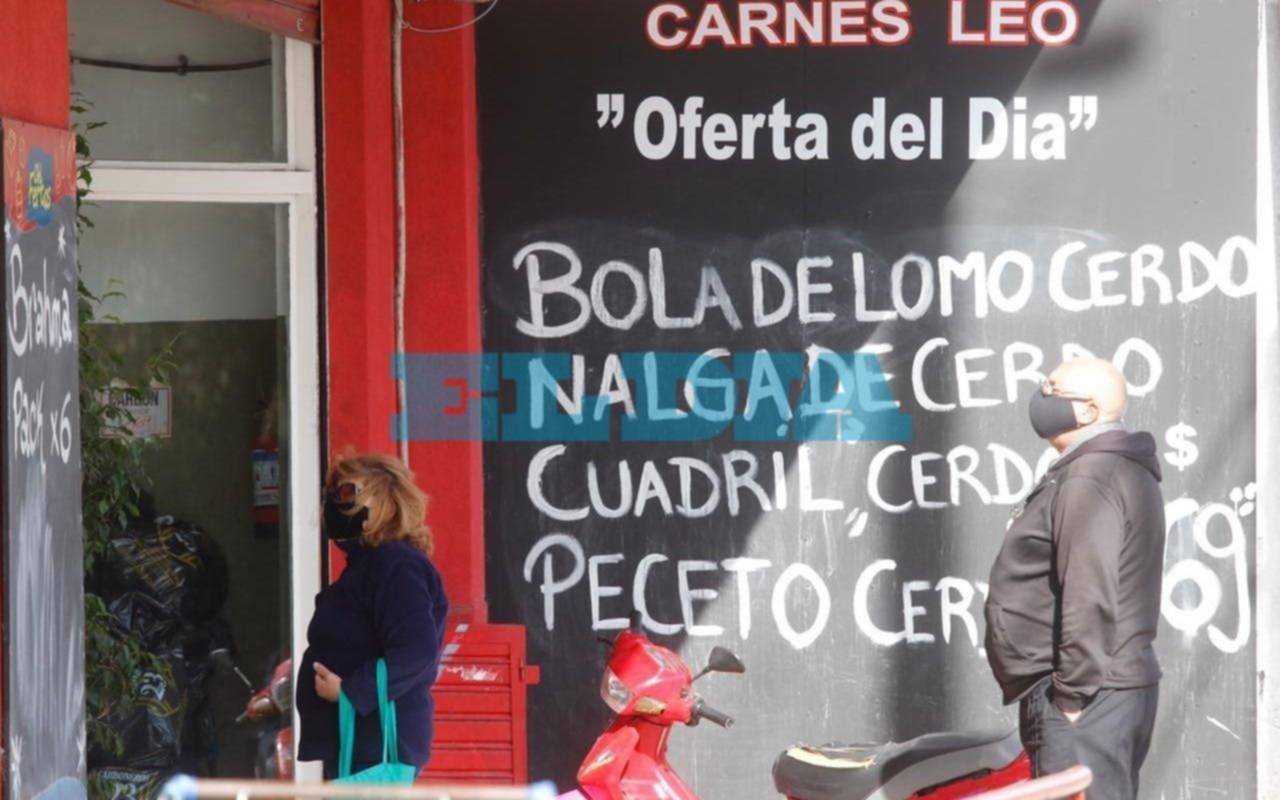 CARNES LEO
"Oferta del Dia"
BOLA DE LOMO CERDO
NALGA DE CERDO
CUADRIL, CERDO $
PECETO
EL DIA
Brahma
Pack x6